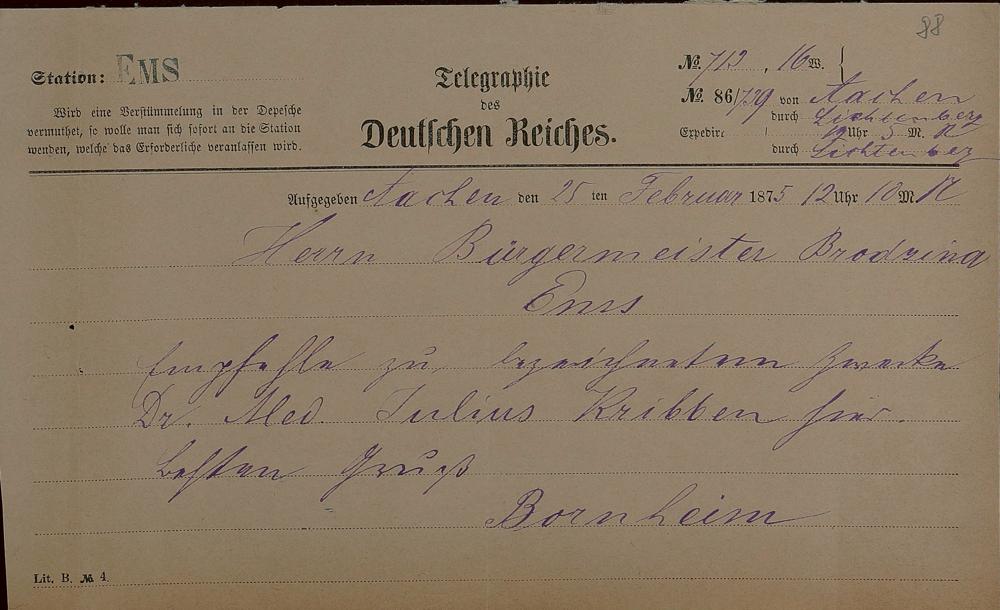 88
Station: EMS
Wird eine Verstümmelung in der Depesche
vermuthet, so wolle man sich sofort an die Station
wenden, welche das Erforderliche veranlassen wird.
Telegraphie
des
Deutschen Reiches.
№ 713 , 16 W.
№. 86/739 von Aachen
durch Lichtenberg
Expedirt 12 Uhr 5 M. N
durch Lichtenberg
Aufgegeben Aachen den 25 ten Februar 1875 12 Uhr 10 M. N
Herrn Bürgermeister Brodzina
Ems
Empfehle zu bezeichnetem Zwecke
Dr. Med. Julius Kribben hier.
Besten Gruß
Bornheim
Lit. B. № 4.